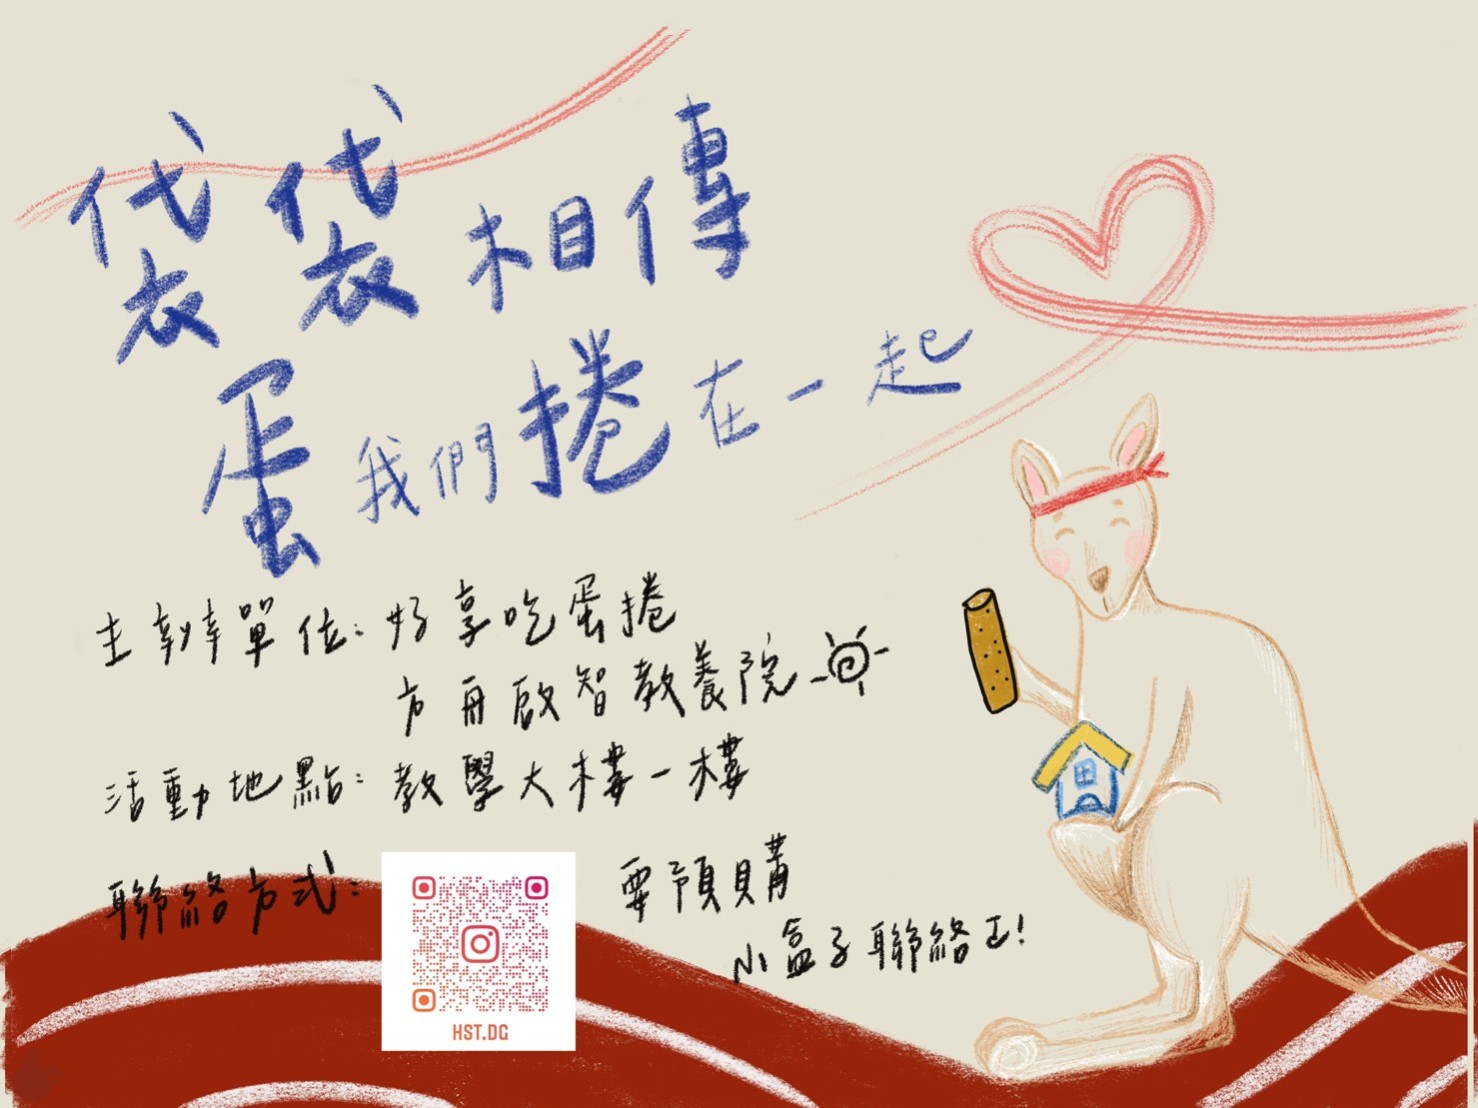 袋袋相傳
蛋我們捲在一起
主辦單位:好享吃蛋捲
方舟啟智教養院
活動地點:教學大樓一樓
聯絡方式:
要預購
小盒子聯絡ㄛ!
HST.DG